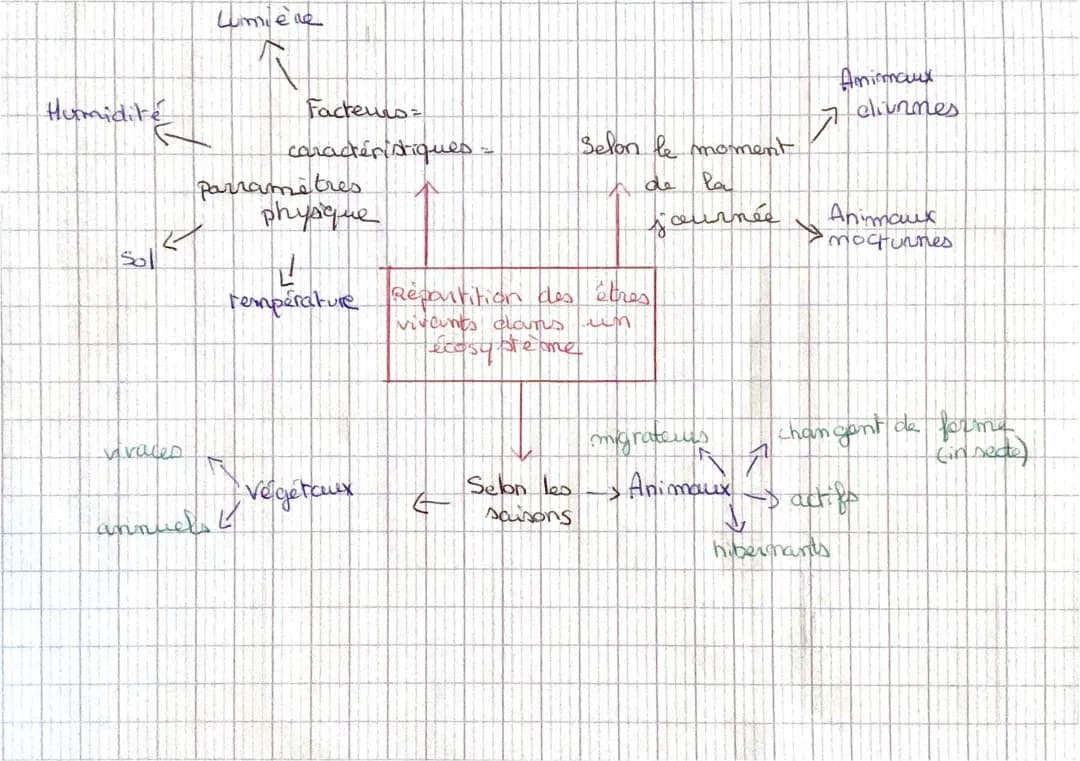 Lumière
Humidité
Facteurs =
caractéristiques =
parramètres
physique
Sol
température
Selon le moment
de la
journée
Animaux
diurnes
Animaux
nocturnes
Répartition des êtres
vivants dans un
écosystème
Selon les
saisons
Végétaux
vivaces
annuels
Animaux
migrateurs
changent de forme
(insecte)
actifs
hibernants